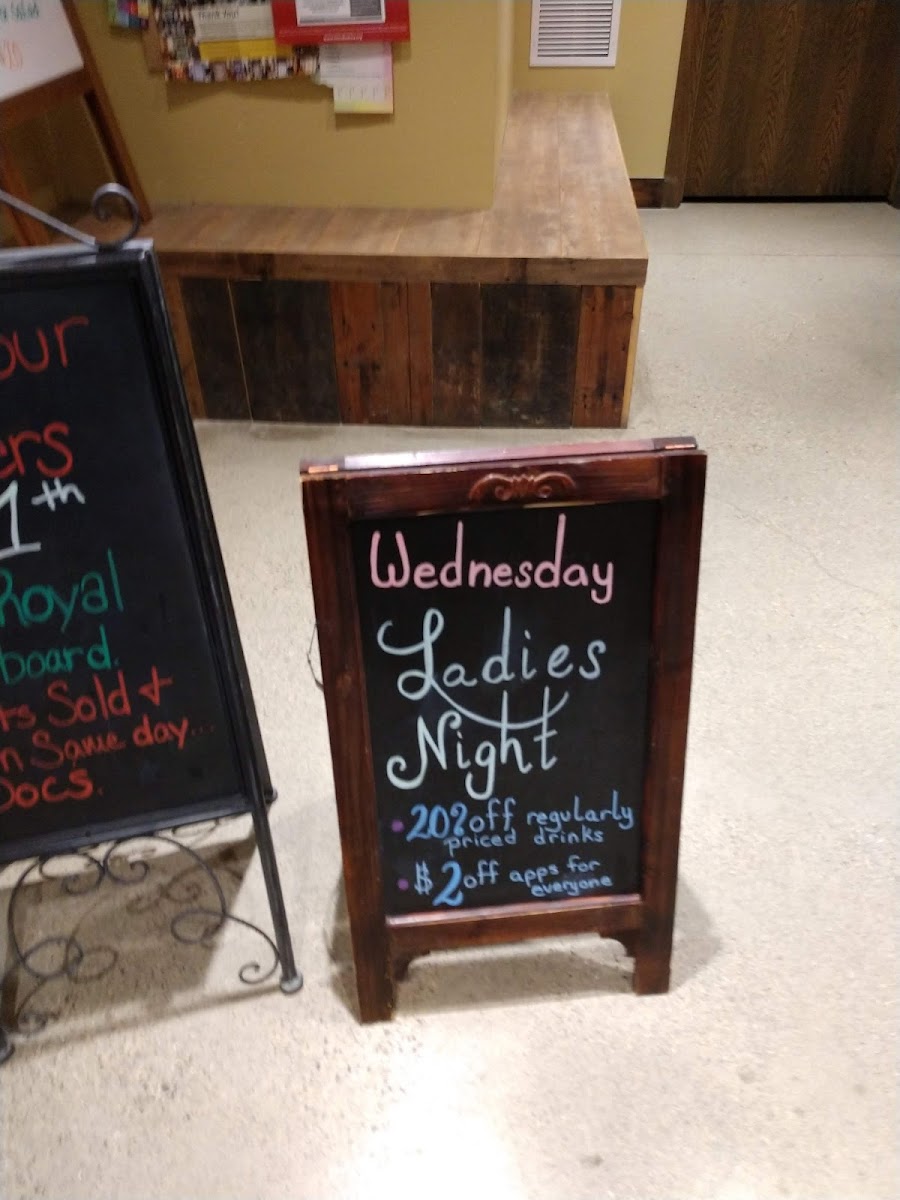 Thank You!
our
ers
1th
Royal
board.
ts Sold &
n Same day...
Docs.
Wednesday
Ladies
Night
• 20% off regularly
priced drinks
• $2 off apps for
everyone